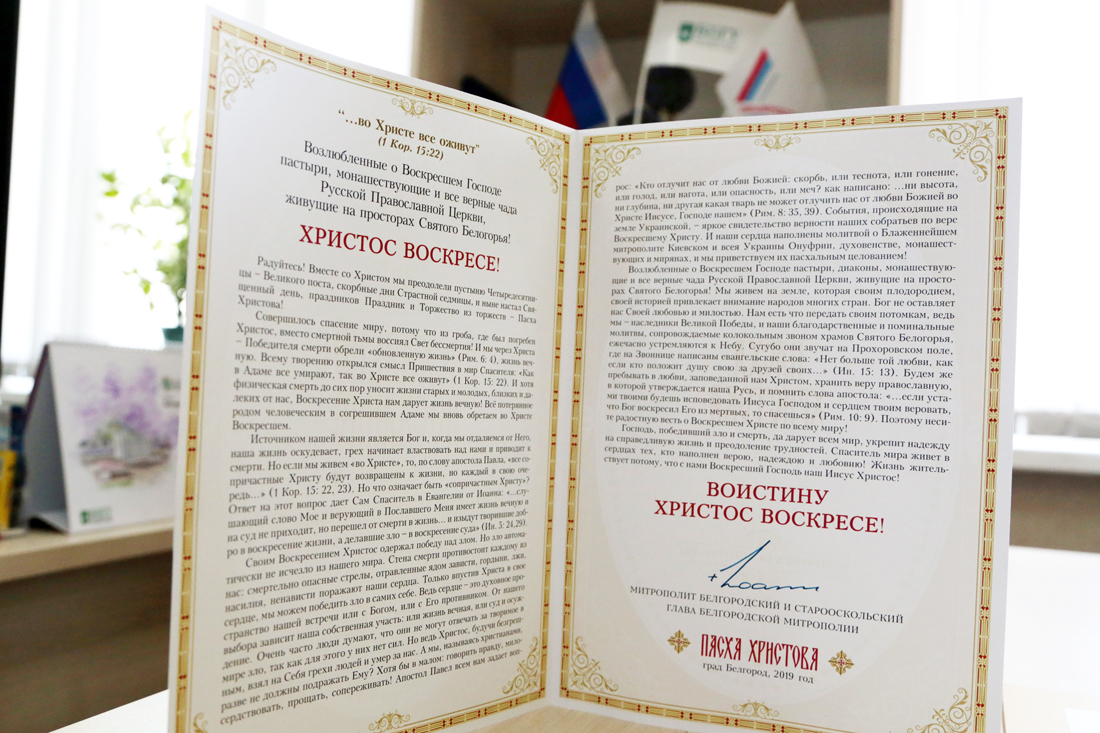 “…во Христе все оживут"
(1 Кор. 15:22)
Возлюбленные о Воскресшем Господе
пастыри, монашествующие и все верные чада
Русской Православной Церкви,
живущие на просторах Святого Белогорья!
ХРИСТОС ВОСКРЕСЕ!
Радуйтесь! Вместе со Христом мы преодолели пустыню Четыредесятни-
цы – Великого поста, скорбные дни Страстной седмицы, и ныне настал Свя-
щенный день, праздников Праздник и Торжество из торжеств – Пасха
Христова!
Совершилось спасение миру, потому что из гроба, где был погребен
Христос, вместо смертной тьмы воссиял Свет бессмертия! И мы через Христа
– Победителя смерти обрели «обновленную жизнь» (Рим. 6: 4), жизнь веч-
ную. Всему творению открылся смысл Пришествия в мир Спасителя: «Как
в Адаме все умирают, так во Христе все оживут» (1 Кор. 15: 22). И хотя
физическая смерть до сих пор уносит жизни старых и молодых, близких и да-
леких от нас, Воскресение Христа нам дарует жизнь вечную! Всё потерянное
родом человеческим в согрешившем Адаме мы вновь обретаем во Христе
Воскресшем.
Источником нашей жизни является Бог и, когда мы отдаляемся от Него,
наша жизнь оскудевает, грех начинает властвовать над нами и приводит к
смерти. Но если мы живем «во Христе», то, по слову апостола Павла, «все со-
причастные Христу будут возвращены к жизни, но каждый в свою оче-
редь…» (1 Кор. 15: 22, 23). Но что означает быть «сопричастным Христу»?
Ответ на этот вопрос дает Сам Спаситель в Евангелии от Иоанна: «…слу-
шающий слово Мое и верующий в Пославшего Меня имеет жизнь вечную и
на суд не приходит, но перешел от смерти в жизнь… и изыдут творившие доб-
ро в воскресение жизни, а делавшие зло – в воскресение суда» (Ин. 5: 24,29).
Своим Воскресением Христос одержал победу над злом. Но зло автома-
тически не исчезло из нашего мира. Стена смерти противостоит каждому из
нас: смертельно опасные стрелы, отравленные ядом зависти, гордыни, лжи,
насилия, ненависти поражают наши сердца. Только впустив Христа в свое
сердце, мы можем победить зло в самих себе. Ведь сердце – это духовное про-
странство нашей встречи или с Богом, или с Его противником. От нашего
выбора зависит наша собственная участь: или жизнь вечная, или суд и осуж-
дение. Очень часто люди думают, что они не могут отвечать за творимое в
мире зло, так как для этого у них нет сил. Но ведь Христос, будучи безгреш-
ным, взял на Себя грехи людей и умер за нас. А мы, называясь христианами,
разве не должны подражать Ему? Хотя бы в малом: говорить правду, мило-
сердствовать, прощать, сопереживать! Апостол Павел всем нам задает воп-
рос: «Кто отлучит нас от любви Божией: скорбь, или теснота, или гонение,
или голод, или нагота, или опасность, или меч? как написано: …ни высота,
ни глубина, ни другая какая тварь не может отлучить нас от любви Божией во
Христе Иисусе, Господе нашем» (Рим. 8: 35, 39). События, происходящие на
земле Украинской, – яркое свидетельство верности наших собратьев по вере
Воскресшему Христу. И наши сердца наполнены молитвой о Блаженнейшем
митрополите Киевском и всея Украины Онуфрии, духовенстве, монашест-
вующих и мирянах, и мы приветствуем их пасхальным целованием!
Возлюбленные о Воскресшем Господе пастыри, диаконы, монашествую-
щие и все верные чада Русской Православной Церкви, живущие на просто-
рах Святого Белогорья! Мы живем на земле, которая своим плодородием,
своей историей привлекает внимание народов многих стран. Бог не оставляет
нас Своей любовью и милостью. Нам есть что передать своим потомкам, ведь
мы – наследники Великой Победы, и наши благодарственные и поминальные
молитвы, сопровождаемые колокольным звоном храмов Святого Белогорья,
ежечасно устремляются к Небу. Сугубо они звучат на Прохоровском поле,
где на Звоннице написаны евангельские слова: «Нет больше той любви, как
если кто положит душу свою за друзей своих…» (Ин. 15: 13). Будем же
пребывать в любви, заповеданной нам Христом, хранить веру православную,
в которой утверждается наша Русь, и помнить слова апостола: «…если уста-
ми твоими будешь исповедовать Иисуса Господом и сердцем твоим веровать,
что Бог воскресил Его из мертвых, то спасешься» (Рим. 10: 9). Поэтому неси-
те радостную весть о Воскресшем Христе по всему миру!
Господь, победивший зло и смерть, да дарует всем мир, укрепит надежду
на справедливую жизнь и преодоление трудностей. Спаситель мира живет в
сердцах тех, кто наполнен верою, надеждою и любовию! Жизнь житель-
ствует потому, что с нами Воскресший Господь наш Иисус Христос!
ВОИСТИНУ
ХРИСТОС ВОСКРЕСЕ!
+Иоанн
МИТРОПОЛИТ БЕЛГОРОДСКИЙ И СТАРООСКОЛЬСКИЙ
ГЛАВА БЕЛГОРОДСКОЙ МИТРОПОЛИИ
ПАСХА ХРИСТОВА
град Белгород, 2019 год